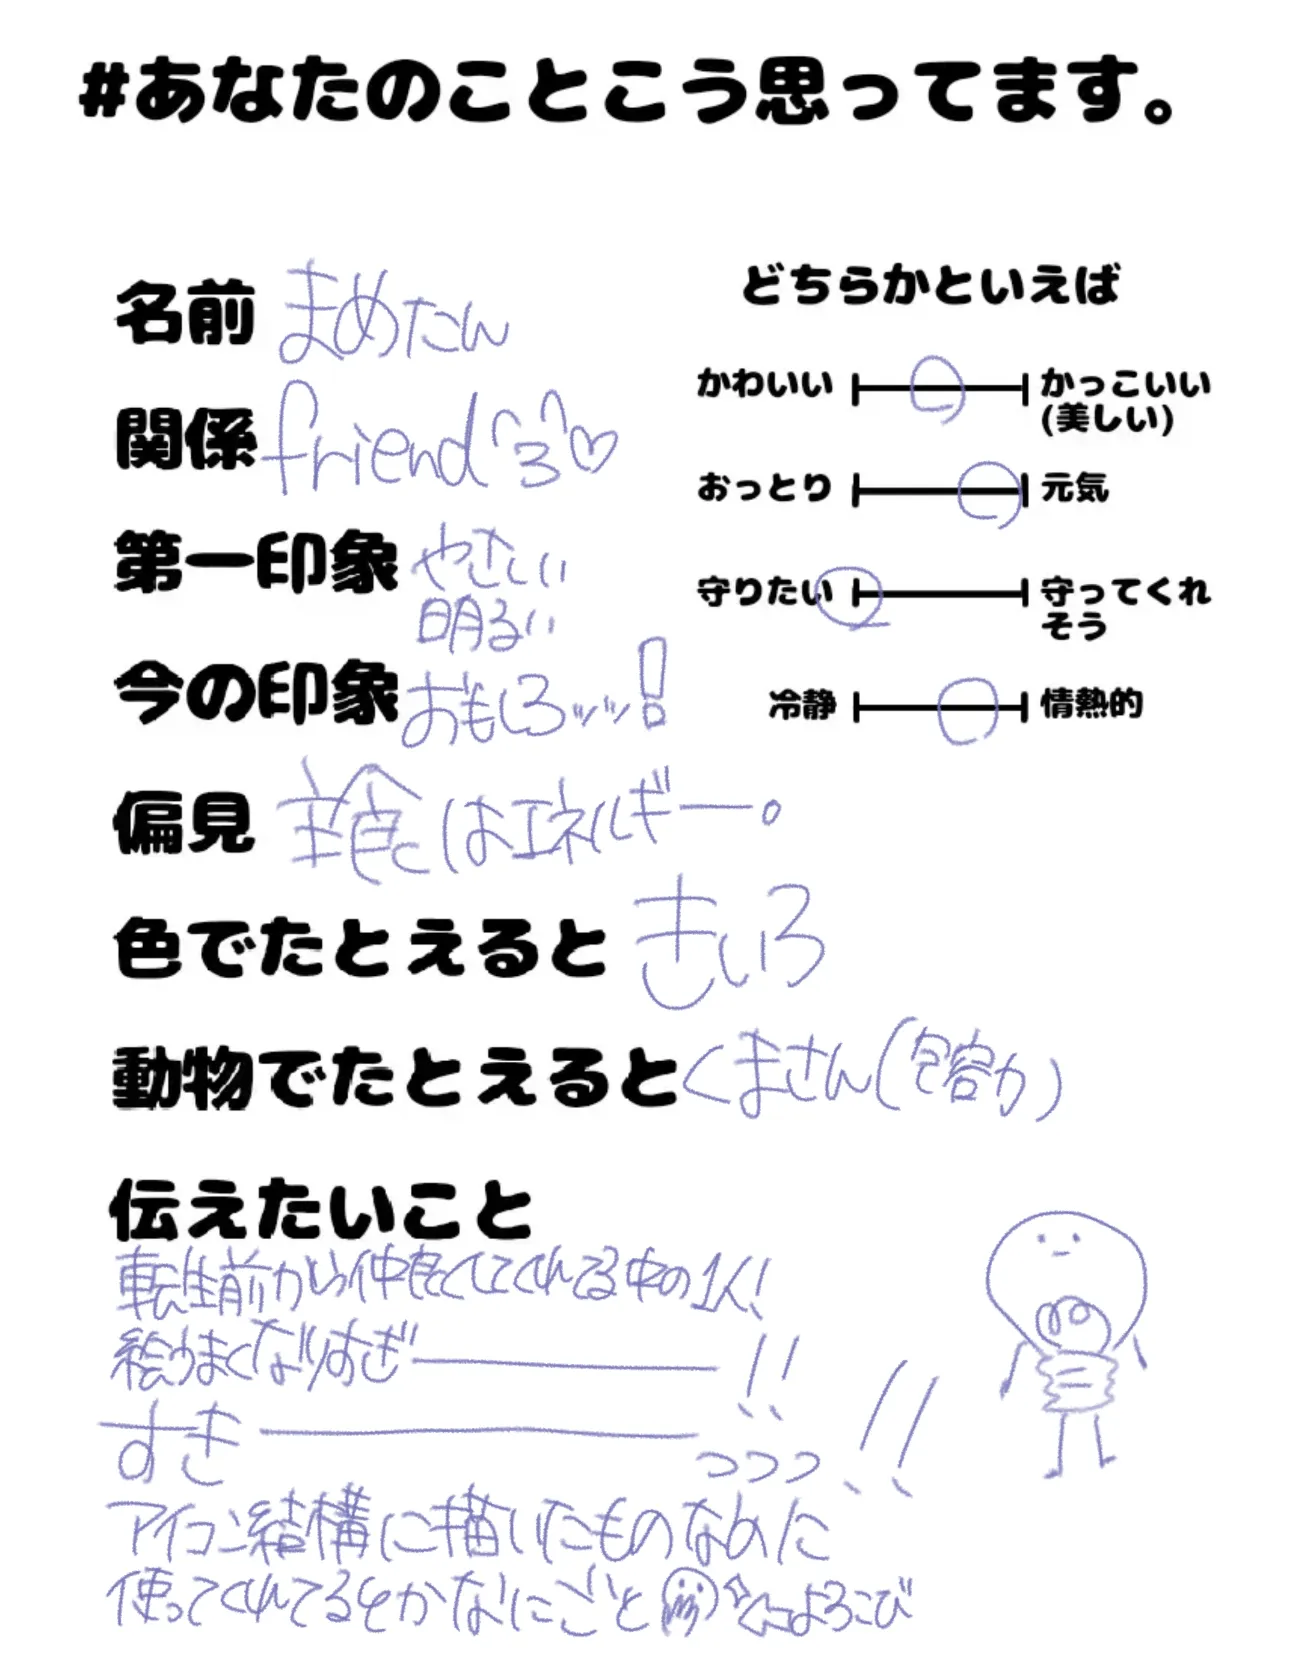 #あなたのことこう思ってます。
名前 まめたん
関係 friend
第一印象 やさしい
明るい
今の印象 おもしろッッ!
偏見 主食はエネルギー。
色でたとえると きいろ
動物でたとえると くまさん(包容力)
どちらかといえば
かわいい かっこいい
(美しい)
おっとり 元気
守りたい 守ってくれ
そう
冷静 情熱的
伝えたいこと
転生前から仲良くしてくれてる中の1人!
絵うまくなりすぎ――!!
すき――っっっ!!
アイコン結構に描いたものなのに
使ってくれてるとかなにごと よろこび